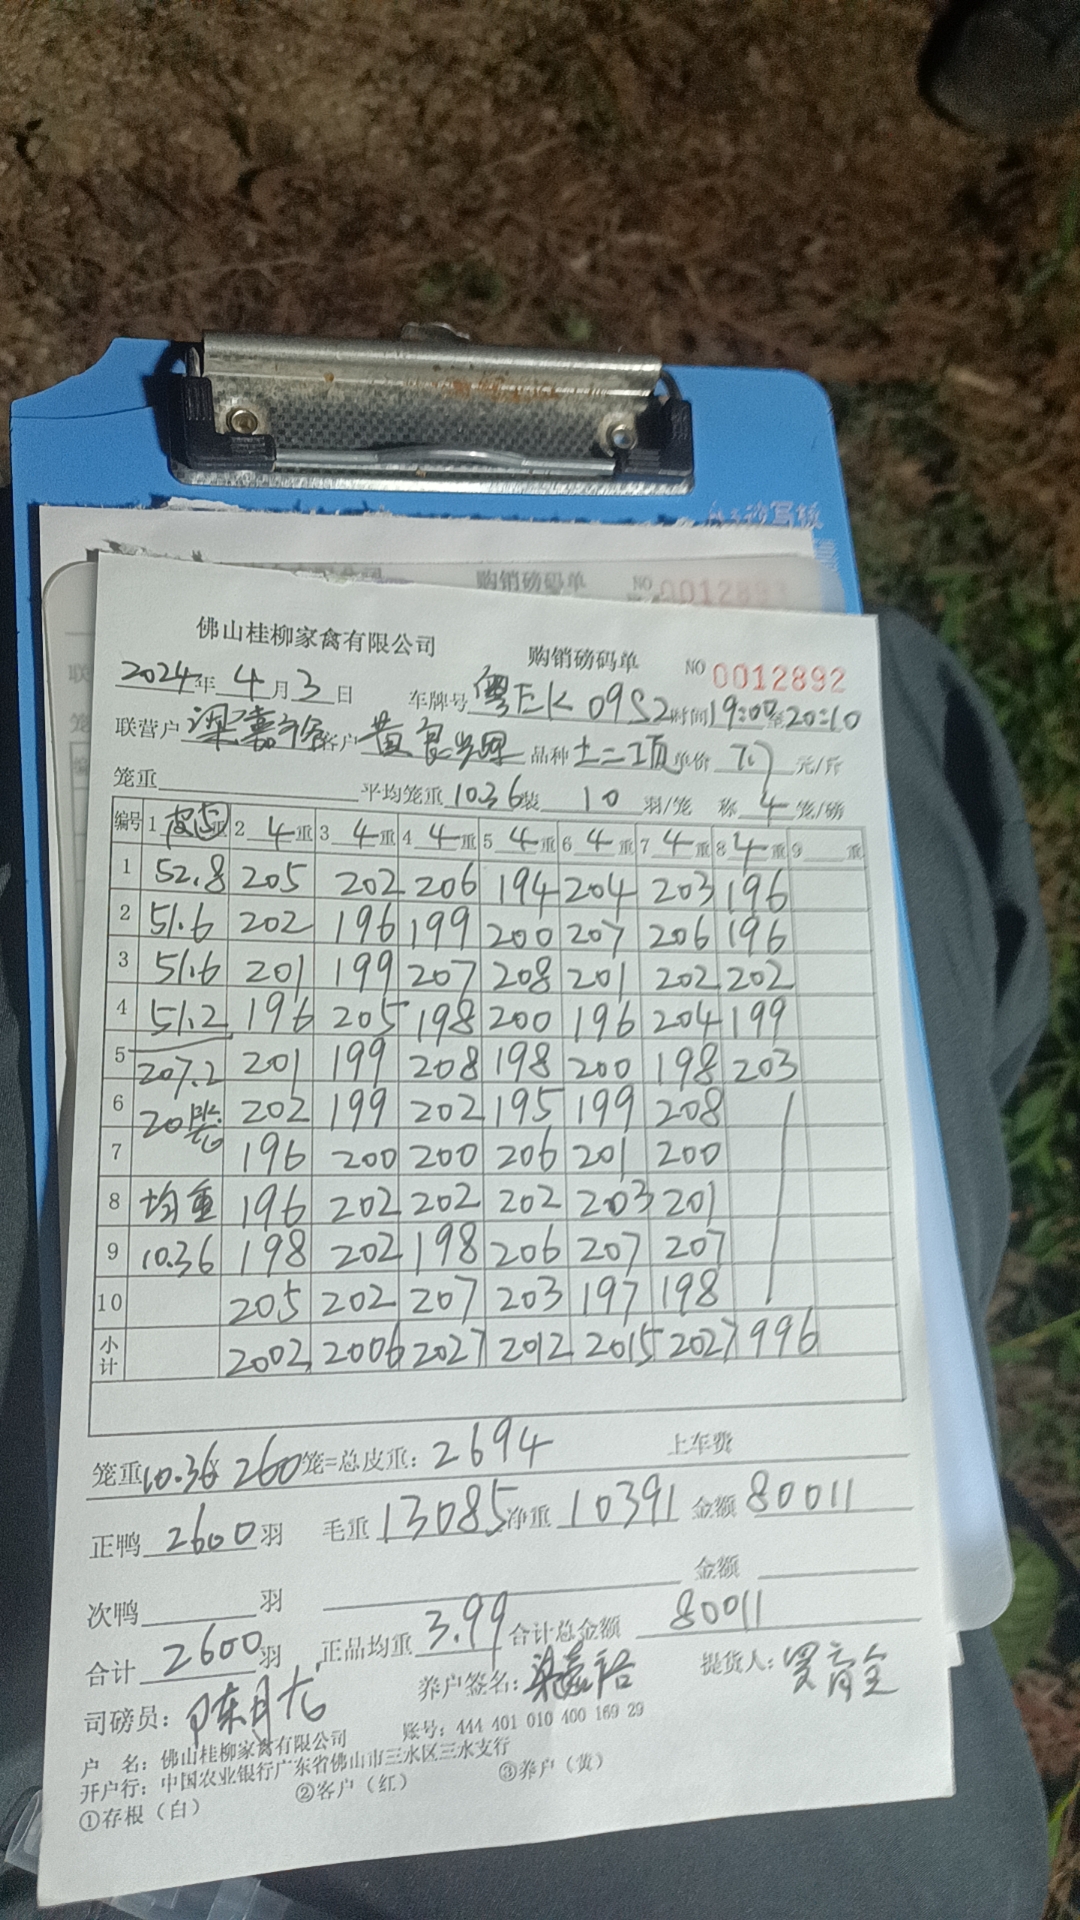 购销磅码单 NO 0012893
佛山桂柳家禽有限公司 购销磅码单 NO 0012892
2024年 4月 3日 车牌号 粤EK09S2 时间 19:00至20:10
联营户 梁嘉裕 客户 黄良 品种 土二项 单价 7.7 元/斤
笼重 平均笼重 10.36 装 10 羽/笼 称 4 笼/磅
编号 1 皮重 2 4重 3 4重 4 4重 5 4重 6 4重 7 4重 8 4重 9 重
1 52.8 205 202 206 194 204 203 196
2 51.6 202 196 199 200 207 206 196
3 51.6 201 199 207 208 201 202 202
4 51.2 196 205 198 200 196 204 199
5 207.2 201 199 208 198 200 198 203
6 20笼 202 199 202 195 199 208
7 196 200 200 206 201 200
8 均重 196 202 202 202 203 201
9 10.36 198 202 198 206 207 207
10 205 202 207 203 197 198
小计 2002 2006 2027 2012 2015 2027 996
笼重 10.36 × 260 笼=总皮重: 2694 上车费
正鸭 2600 羽 毛重 13085 净重 10391 金额 80011
次鸭 羽 金额
合计 2600 羽 正品均重 3.99 合计总金额 80011
司磅员: 陈月 养户签名: 梁嘉裕 提货人:
户 名: 佛山桂柳家禽有限公司 账号: 444 401 010 400 169 29
开户行: 中国农业银行广东省佛山市三水区三水支行
①存根（白） ②客户（红） ③养户（黄）